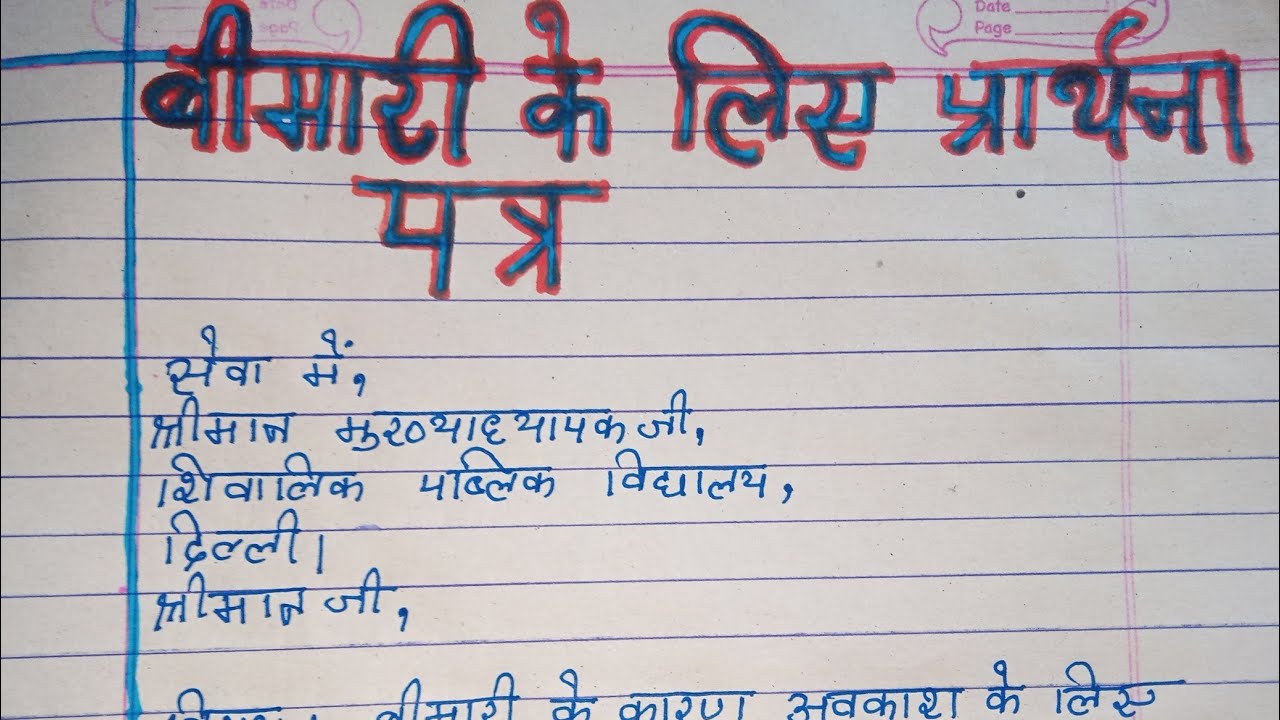 Date
Page
बीमारी के लिए प्रार्थना
पत्र
सेवा में,
श्रीमान मुख्याध्यापक जी,
शिवालिक पब्लिक विद्यालय,
दिल्ली।
श्रीमान जी,
बीमारी के कारण अवकाश के लिए